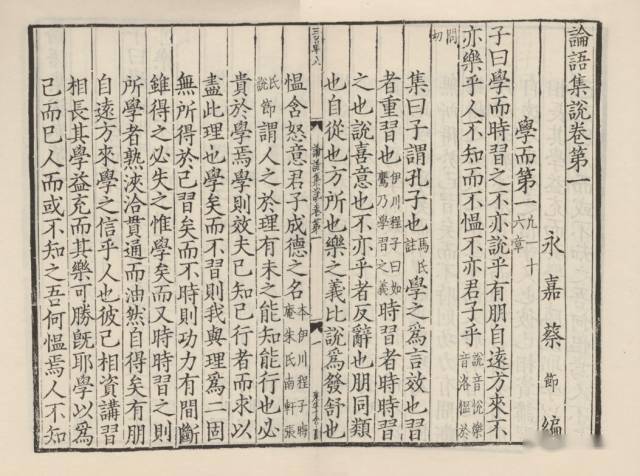 論語集說卷第一
永嘉蔡節編
學而第一凡十六章
子曰學而時習之不亦說乎有朋自遠方來不
亦樂乎人不知而不慍不亦君子乎說音說樂音洛慍於
問切
集曰子謂孔子也馬氏註學之爲言效也習
者重習也伊川程子曰如鷹乃學習之義時習者時時習
之也說喜意也不亦乎者反辭也朋同類
也自從也方所也樂之義比說爲發舒也
論語集說卷第一
一
慍含怒意君子成德之名本伊川程子晦庵朱氏南軒張
氏說節謂人之於理有未之能知能行也必
貴於學焉學則效夫已知已行者而求以
盡此理也學矣而不習則我與理爲二固
無所得於己習矣而不時則功力有間斷
雖得之必失之惟學矣而又時時習之則
所學者熟浹洽貫通而油然自得矣有朋
自遠方來學之信乎人也彼己相資講習
相長其學益充而其樂可勝旣耶學以爲
己而已人而或不知之吾何慍焉人不知